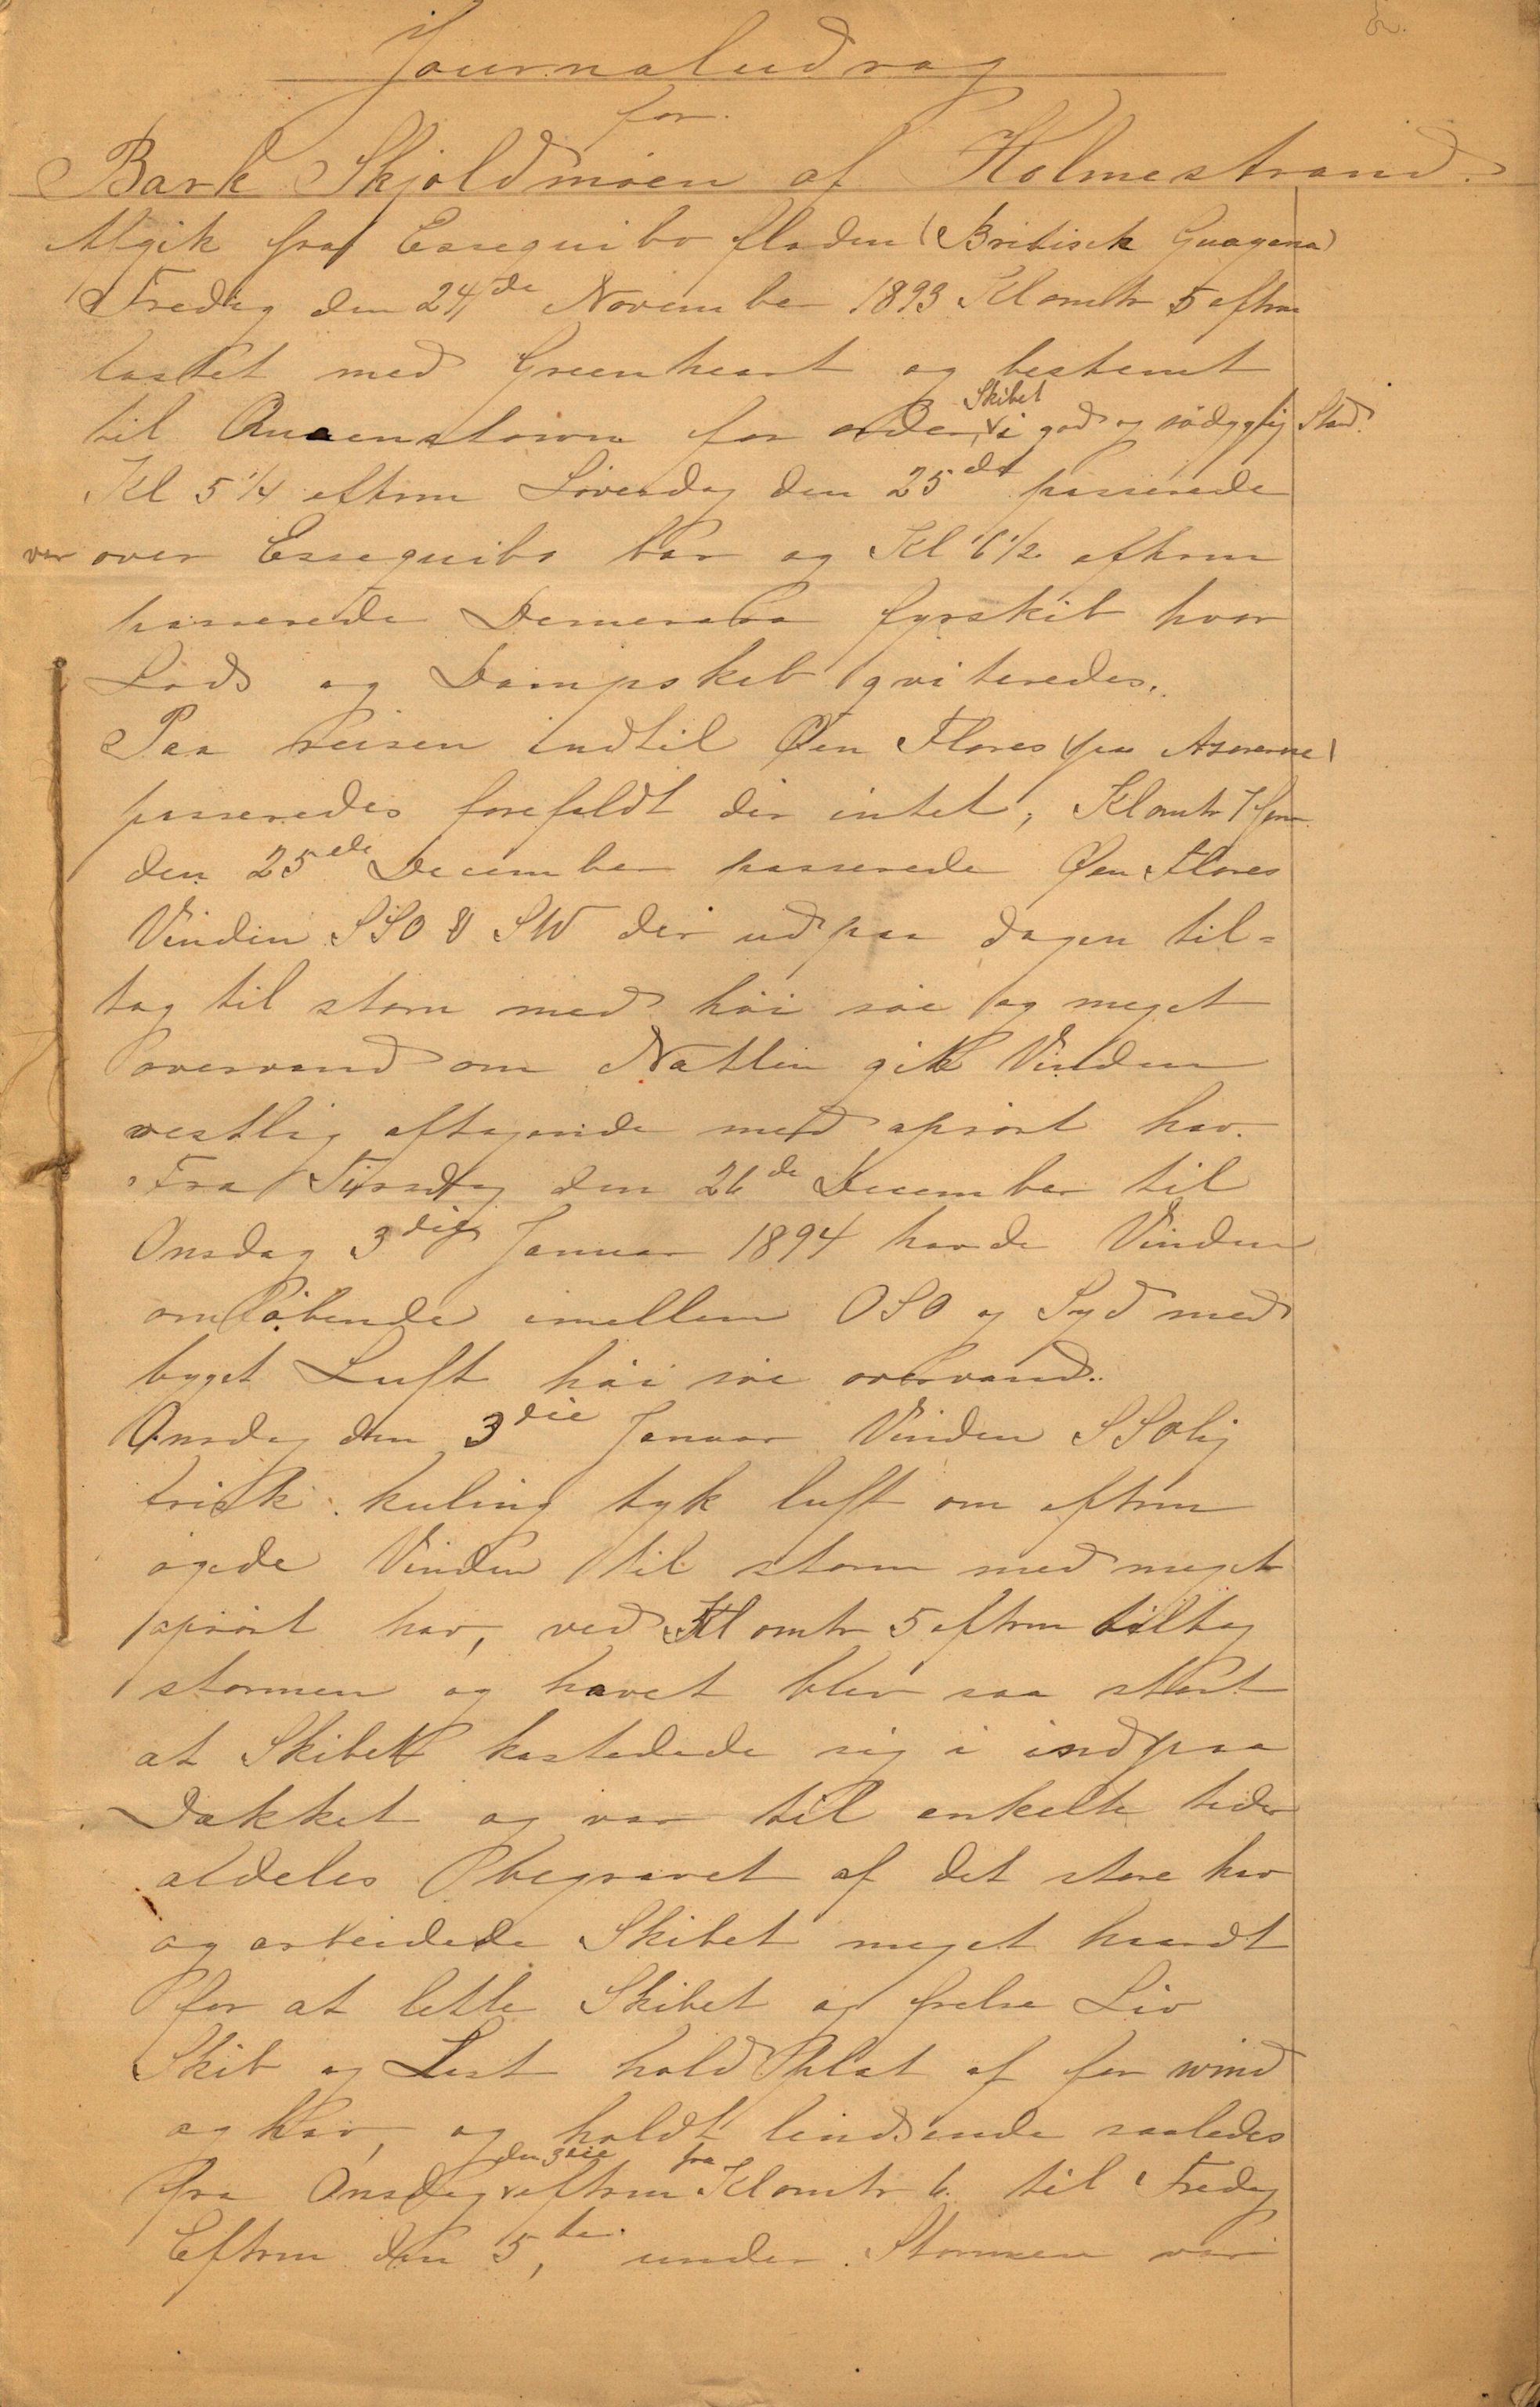 Journaludrag
for
Bark Skjoldmöen af Holmestrand.
Afgik fra Essequibo floden (Britisk Guayana)
Fredag den 24de November 1893 Kl omtr 5 eftrm
lastet med Greenheart og bestemt
til Queenstown for order, Skibet i god og södygtig Stand.
Kl 5 1/4 eftrm Löverdag den 25de passerede
over Essequibo bar og Kl 6 1/2 eftrm
passerede Demerara fyrskib hvor
Lods og Dampskib qviteredes.
Paa Reisen indtil Øen Flores (paa Asorerne)
passeredes forefaldt der intet, Kl omtr 7 frm
den 25de December passerede Øen Flores
Vinden SSO & SW der ud paa dagen til=
tog til storm med höi söe og meget
overvand om Natten gik Vinden
vestlig aftagende med oprört hav.
Fra Tirsdag den 26de December til
Onsdag 3die Januar 1894 havde Vinden
omlöbende imellem OSO og Syd med
byget Luft höi söe overvand.
Onsdag den 3die Januar Vinden SSOlig
frisk kuling tyk luft om eftrm
ögede Vinden til storm med meget
oprört hav, ved Kl omtr 5 eftrm tiltog
stormen og havet blev saa stort
at Skibet kastedede sig i ind paa
Dækket og var til enkelte tider
aldeles begravet af det store hav
og arbeidede Skibet meget haardt
for at lette Skibet og frelse Liv
Skib og Last hold plat af for wind
og Hav, og holdt lindsende saaledes
fra Onsdag den 3die eftrm fra Kl omtr 6 til Fredag
Eftrm den 5te, under Stormen var